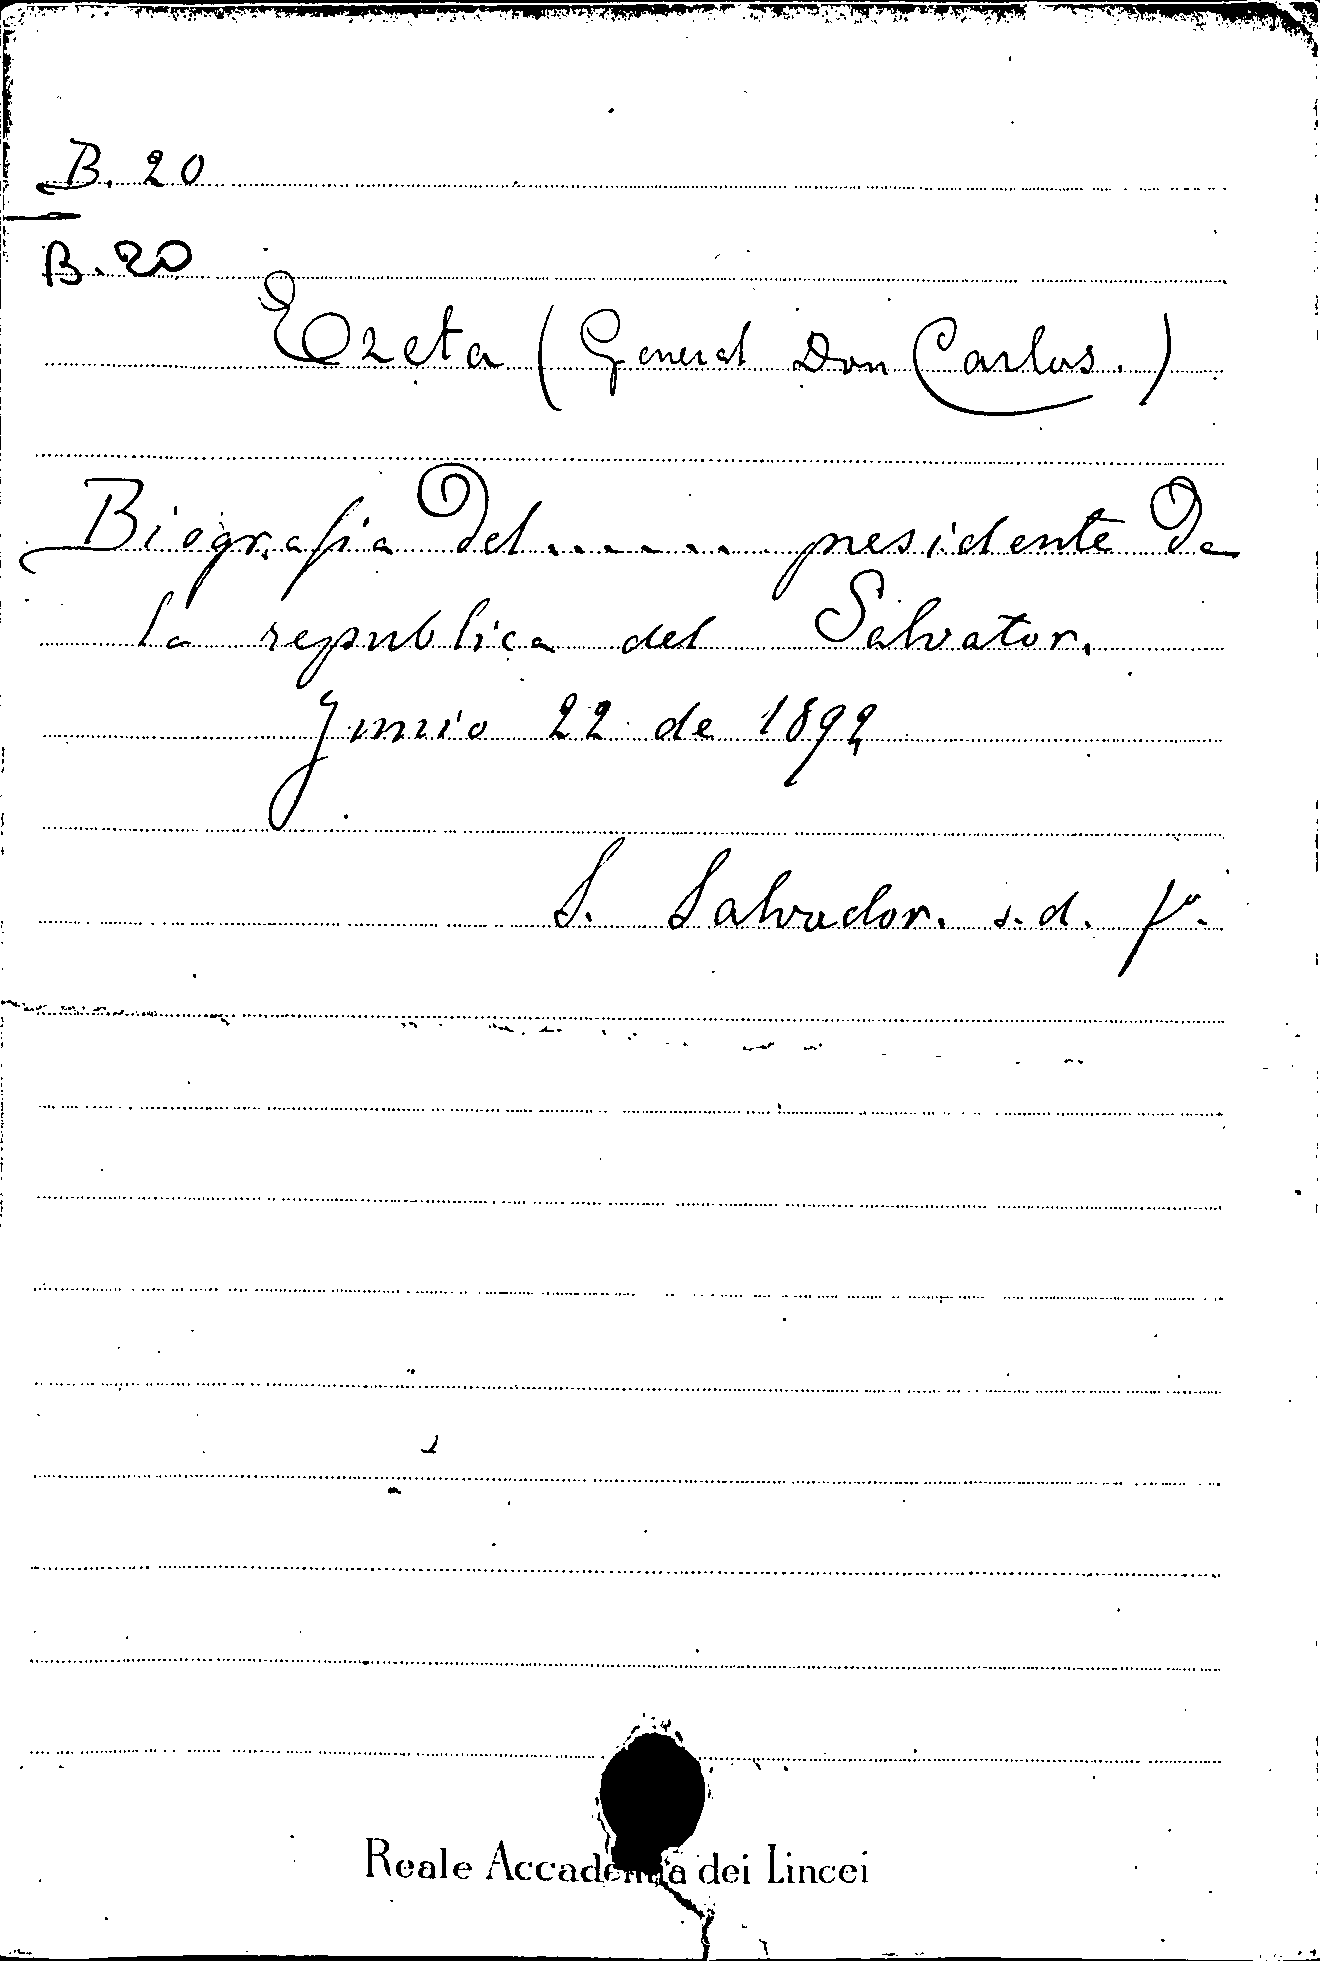 B. 20
B. 20
Ezeta (General Don Carlos.)
Biografia del...... presidente de
la republica del Salvator.
Junio 22 de 1892
S. Salvador. s.d. fº.
Reale Accademia dei Lincei